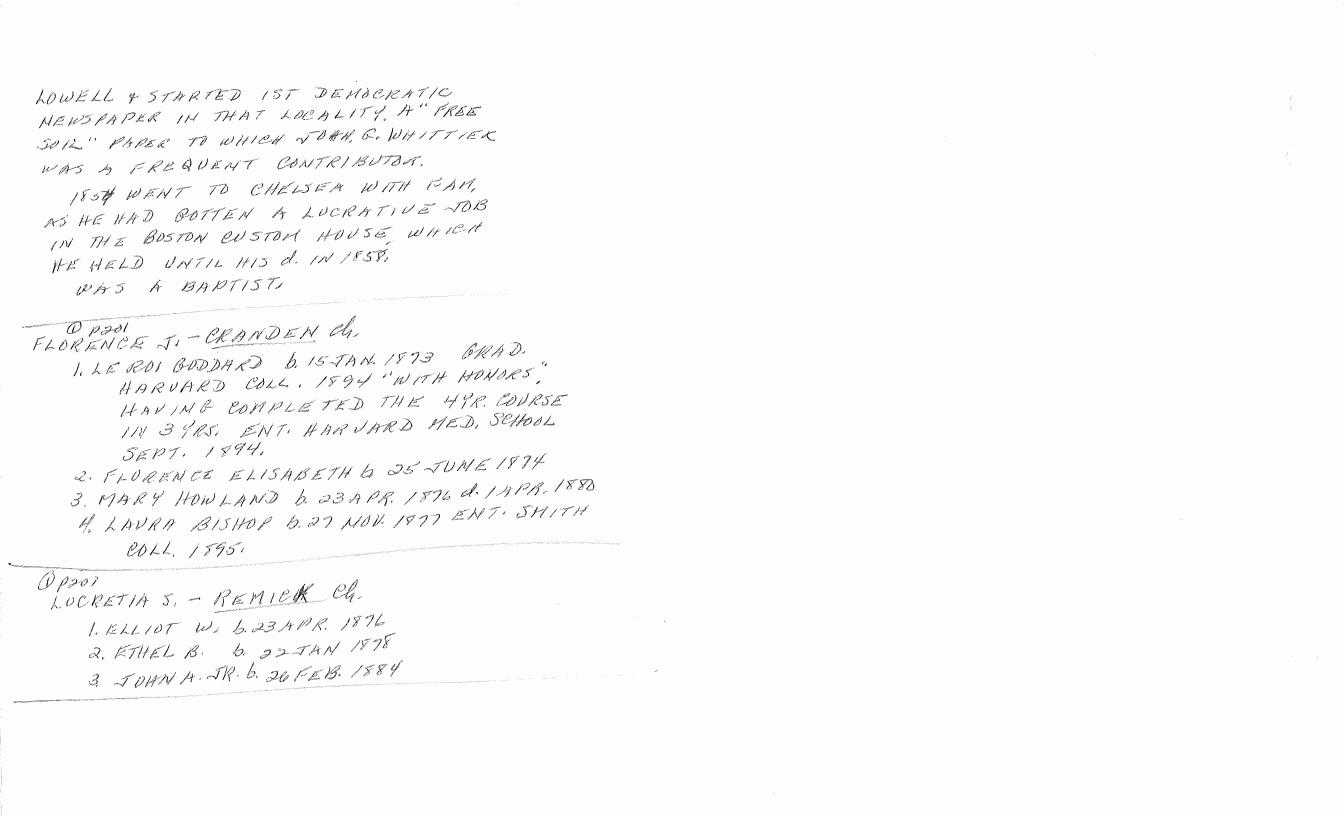 LOWELL & STARTED 1ST DEMOCRATIC
NEWSPAPER IN THAT LOCALITY, A "FREE
SOIL" PAPER TO WHICH JOHN. G. WHITTIER
WAS A FREQUENT CONTRIBUTOR.
1854 WENT TO CHELSEA WITH FAM,
AS HE HAD GOTTEN A LUCRATIVE JOB
IN THE BOSTON CUSTOM HOUSE WHICH
HE HELD UNTIL HIS d. IN 1858.
WAS A BAPTIST.
① P201
FLORENCE J. - CRANDEN Ch.
1. LE ROI GODDARD b. 15 JAN. 1873 GRAD.
HARVARD COLL. 1894 "WITH HONORS",
HAVING COMPLETED THE 4YR. COURSE
IN 3 YRS. ENT. HARVARD MED. SCHOOL
SEPT. 1894.
2. FLORENCE ELISABETH b 25 JUNE 1874
3. MARY HOWLAND b. 23 APR. 1876 d. 1 APR. 1880
4. LAURA BISHOP b. 27 NOV. 1877 ENT. SMITH
COLL. 1895.
① P201
LUCRETIA S. - REMICK Ch.
1. ELLIOT W. b. 23 APR. 1876
2. ETHEL B. b. 22 JAN 1878
3. JOHN A. JR. b. 26 FEB. 1884